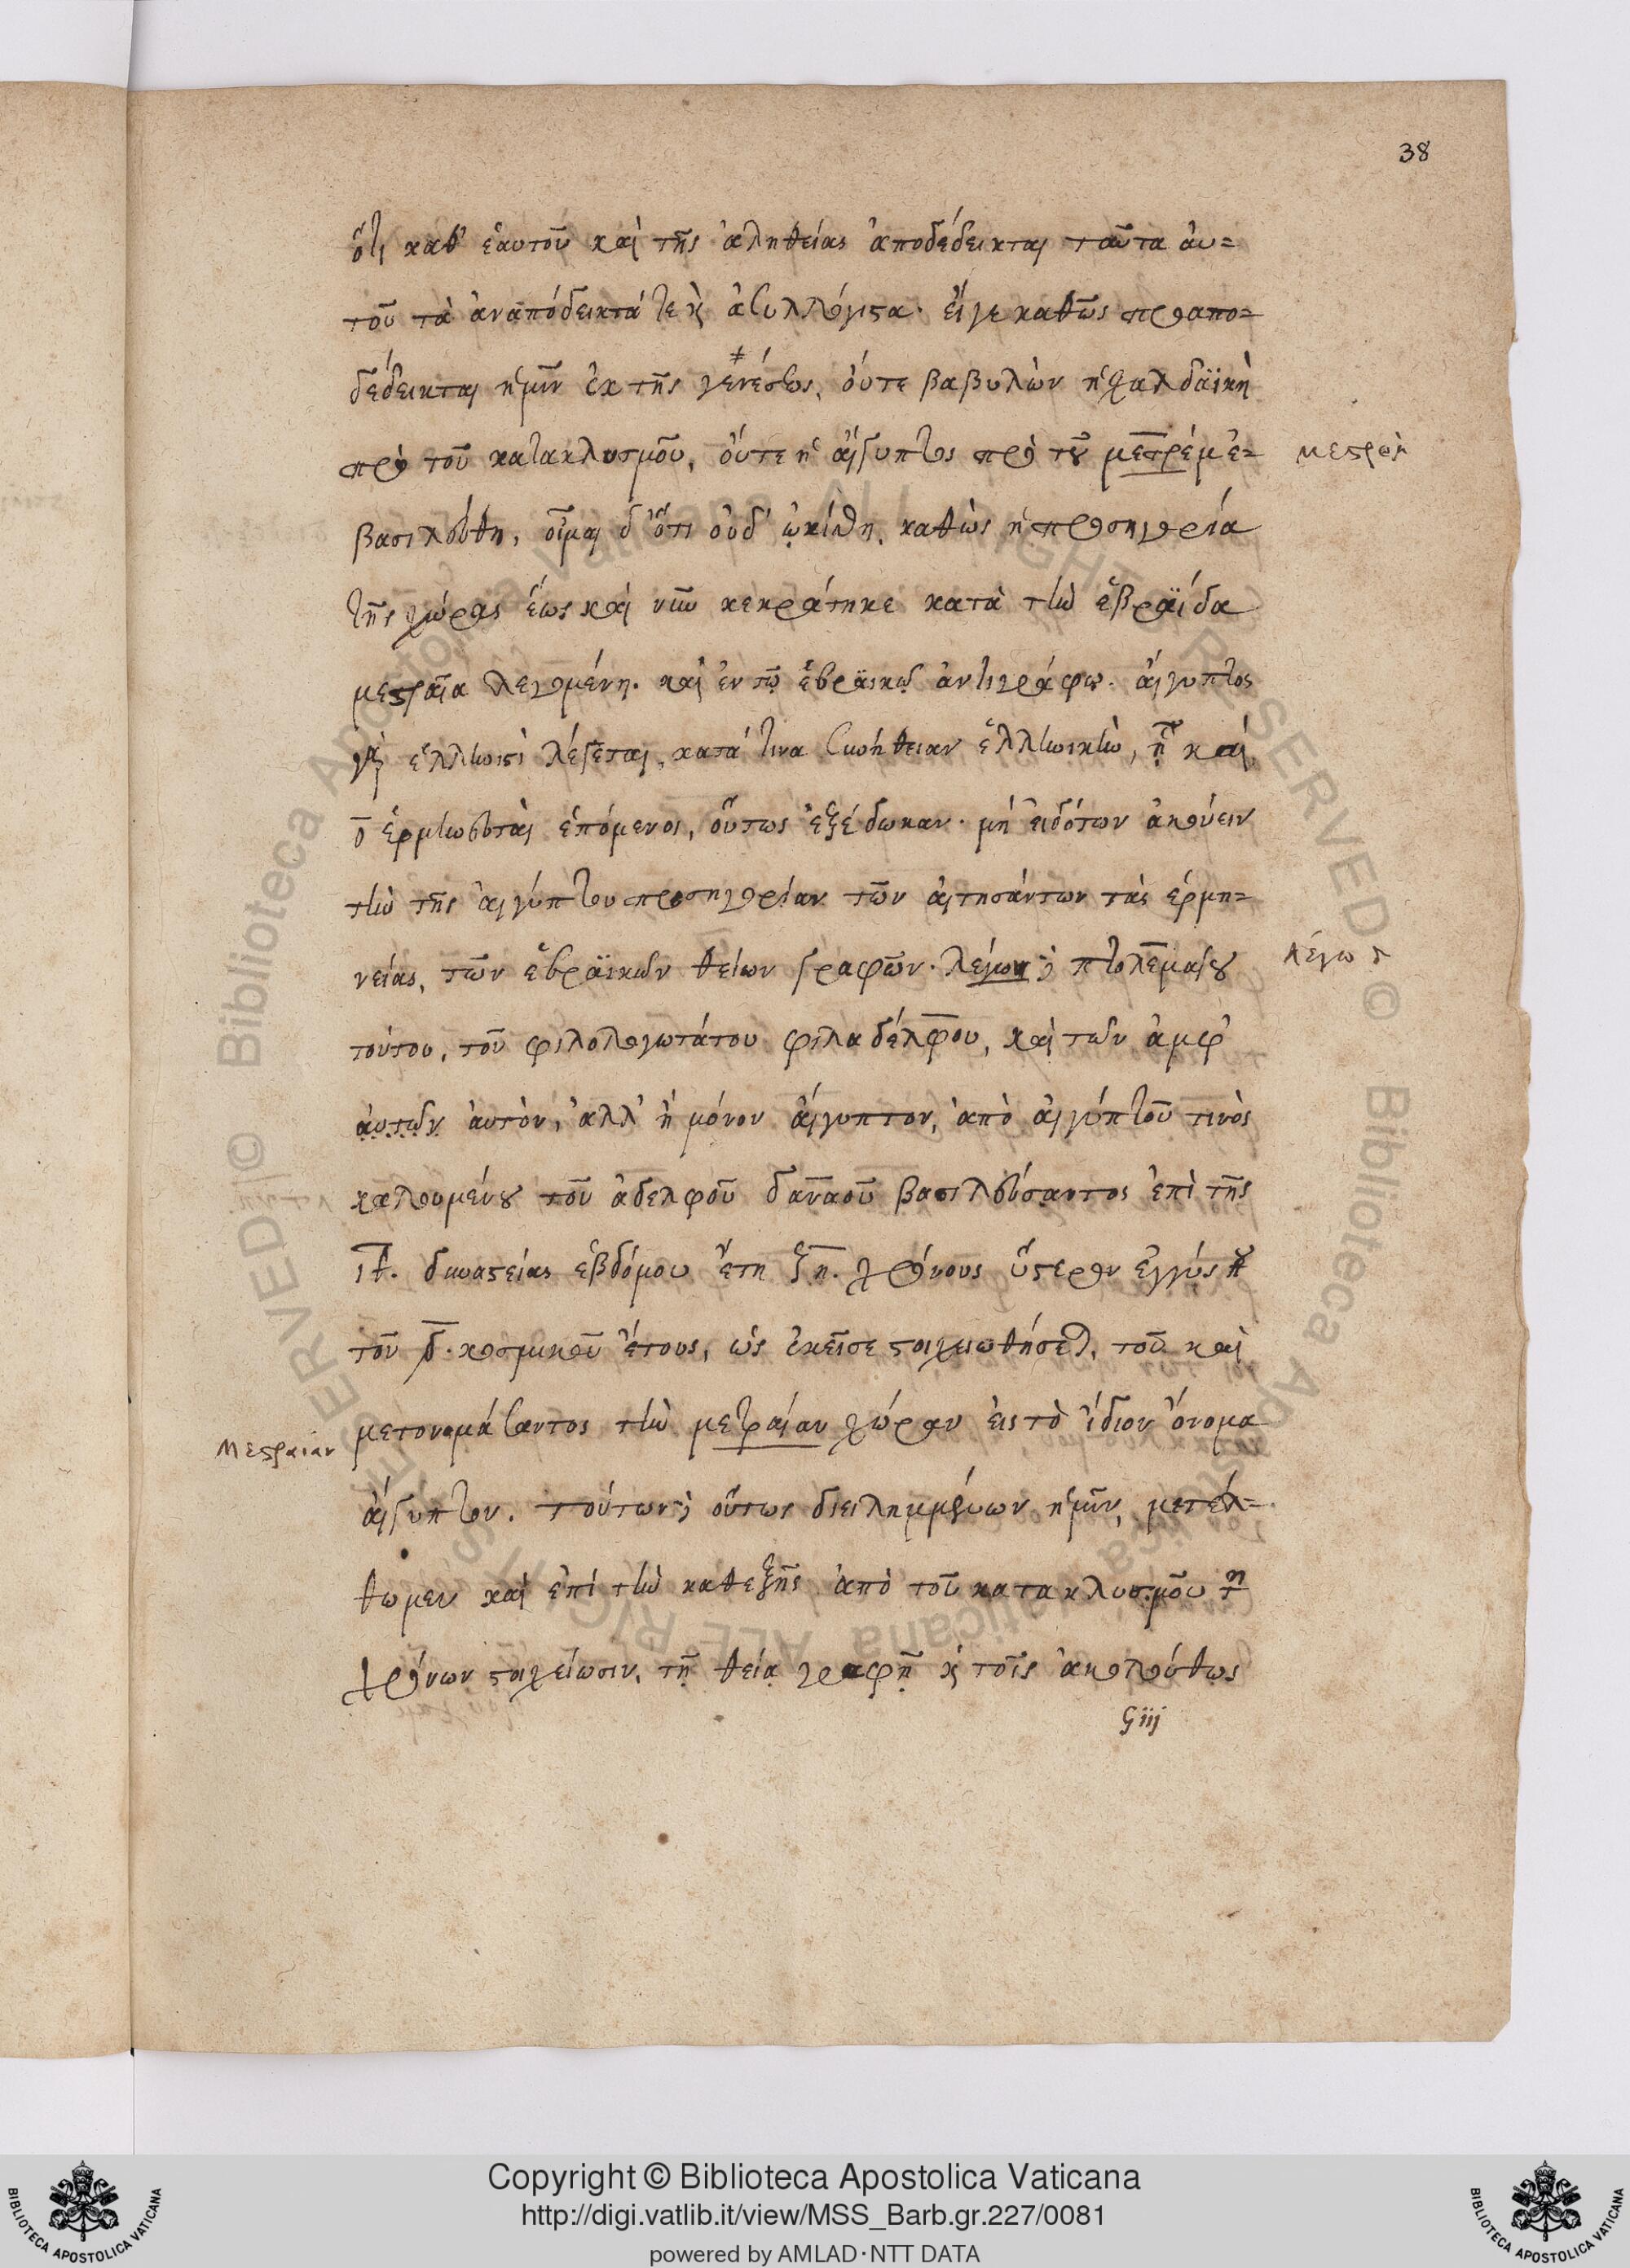 38
ὅτι καθ' ἑαυτοῦ καὶ τῆς ἀληθείας ἀποδέδεικται ταῦτα αὐ=
τοῦ τὰ ἀναπόδεικτά τε κ ἀσυλλόγιστα. εἴγε καθὼς προαπο=
δέδεικται ἡμῖν ἐκ τῆς γενέσεως, οὔτε βαβυλὼν ἡ χαλδαϊκὴ
πρὸ τοῦ κατακλυσμοῦ, οὔτε ἡ αἴγυπτος πρὸ τοῦ μεστρέμ ἐ=
μεστρὲμ
βασιλεύθη, οἶμαι δ' ὅτι οὐδ' ᾠκίσθη, καθὼς ἡ προσηγορία
τῆς χώρας ἕως καὶ νῦν κεκράτηκε κατὰ τὴν ἑβραΐδα
μεστραῖα λεγομένη. καὶ ἐν τῷ ἑβραϊκῷ ἀντιγράφῳ. αἴγυπτος
γὰρ ἑλληνιστὶ λέγεται, κατά τινα συνήθειαν ἑλληνικὴν, ᾗ καὶ
ο ἑρμηνευταὶ ἑπόμενοι, οὕτως ἐξέδωκαν. μὴ εἰδότων ἀκούειν
τὴν τῆς αἰγύπτου προσηγορίαν τῶν αἰτησάντων τὰς ἑρμη=
νείας, τῶν ἑβραϊκῶν θείων γραφῶν. λέγων δὲ πτολεμαίου
λέγω δ
τούτου, τοῦ φιλολογωτάτου φιλαδέλφου, καὶ τῶν ἀμφ'
αὐτῶν αὐτὸν, ἀλλ' ἢ μόνον αἴγυπτον, ἀπὸ αἰγύπτου τινὸς
καλουμένου τοῦ ἀδελφοῦ δαναοῦ βασιλεύσαντος ἐπὶ τῆς
ιθ. δυναστείας ἑβδόμου ἔτη ξη. χρόνους ὕστερον ἐγγύς που
τοῦ δ. κοσμικοῦ ἔτους, ὡς ἐκεῖσε στοιχειωθήσεται, τοῦ καὶ
μετονομάσαντος τὴν μετραίαν χώραν εἰς τὸ ἴδιον ὄνομα
μεστραίαν
αἴγυπτον. τούτων δὲ οὕτως διειλημμένων ἡμῖν, μετέλ-
θωμεν καὶ ἐπὶ τὴν καθεξῆς ἀπὸ τοῦ κατακλυσμοῦ τῶν
χρόνων στοιχείωσιν, τῇ θείᾳ γραφῇ κ τοῖς ἀκολούθως
G iij
Copyright © Biblioteca Apostolica Vaticana
http://digi.vatlib.it/view/MSS_Barb.gr.227/0081
powered by AMLAD·NTT DATA